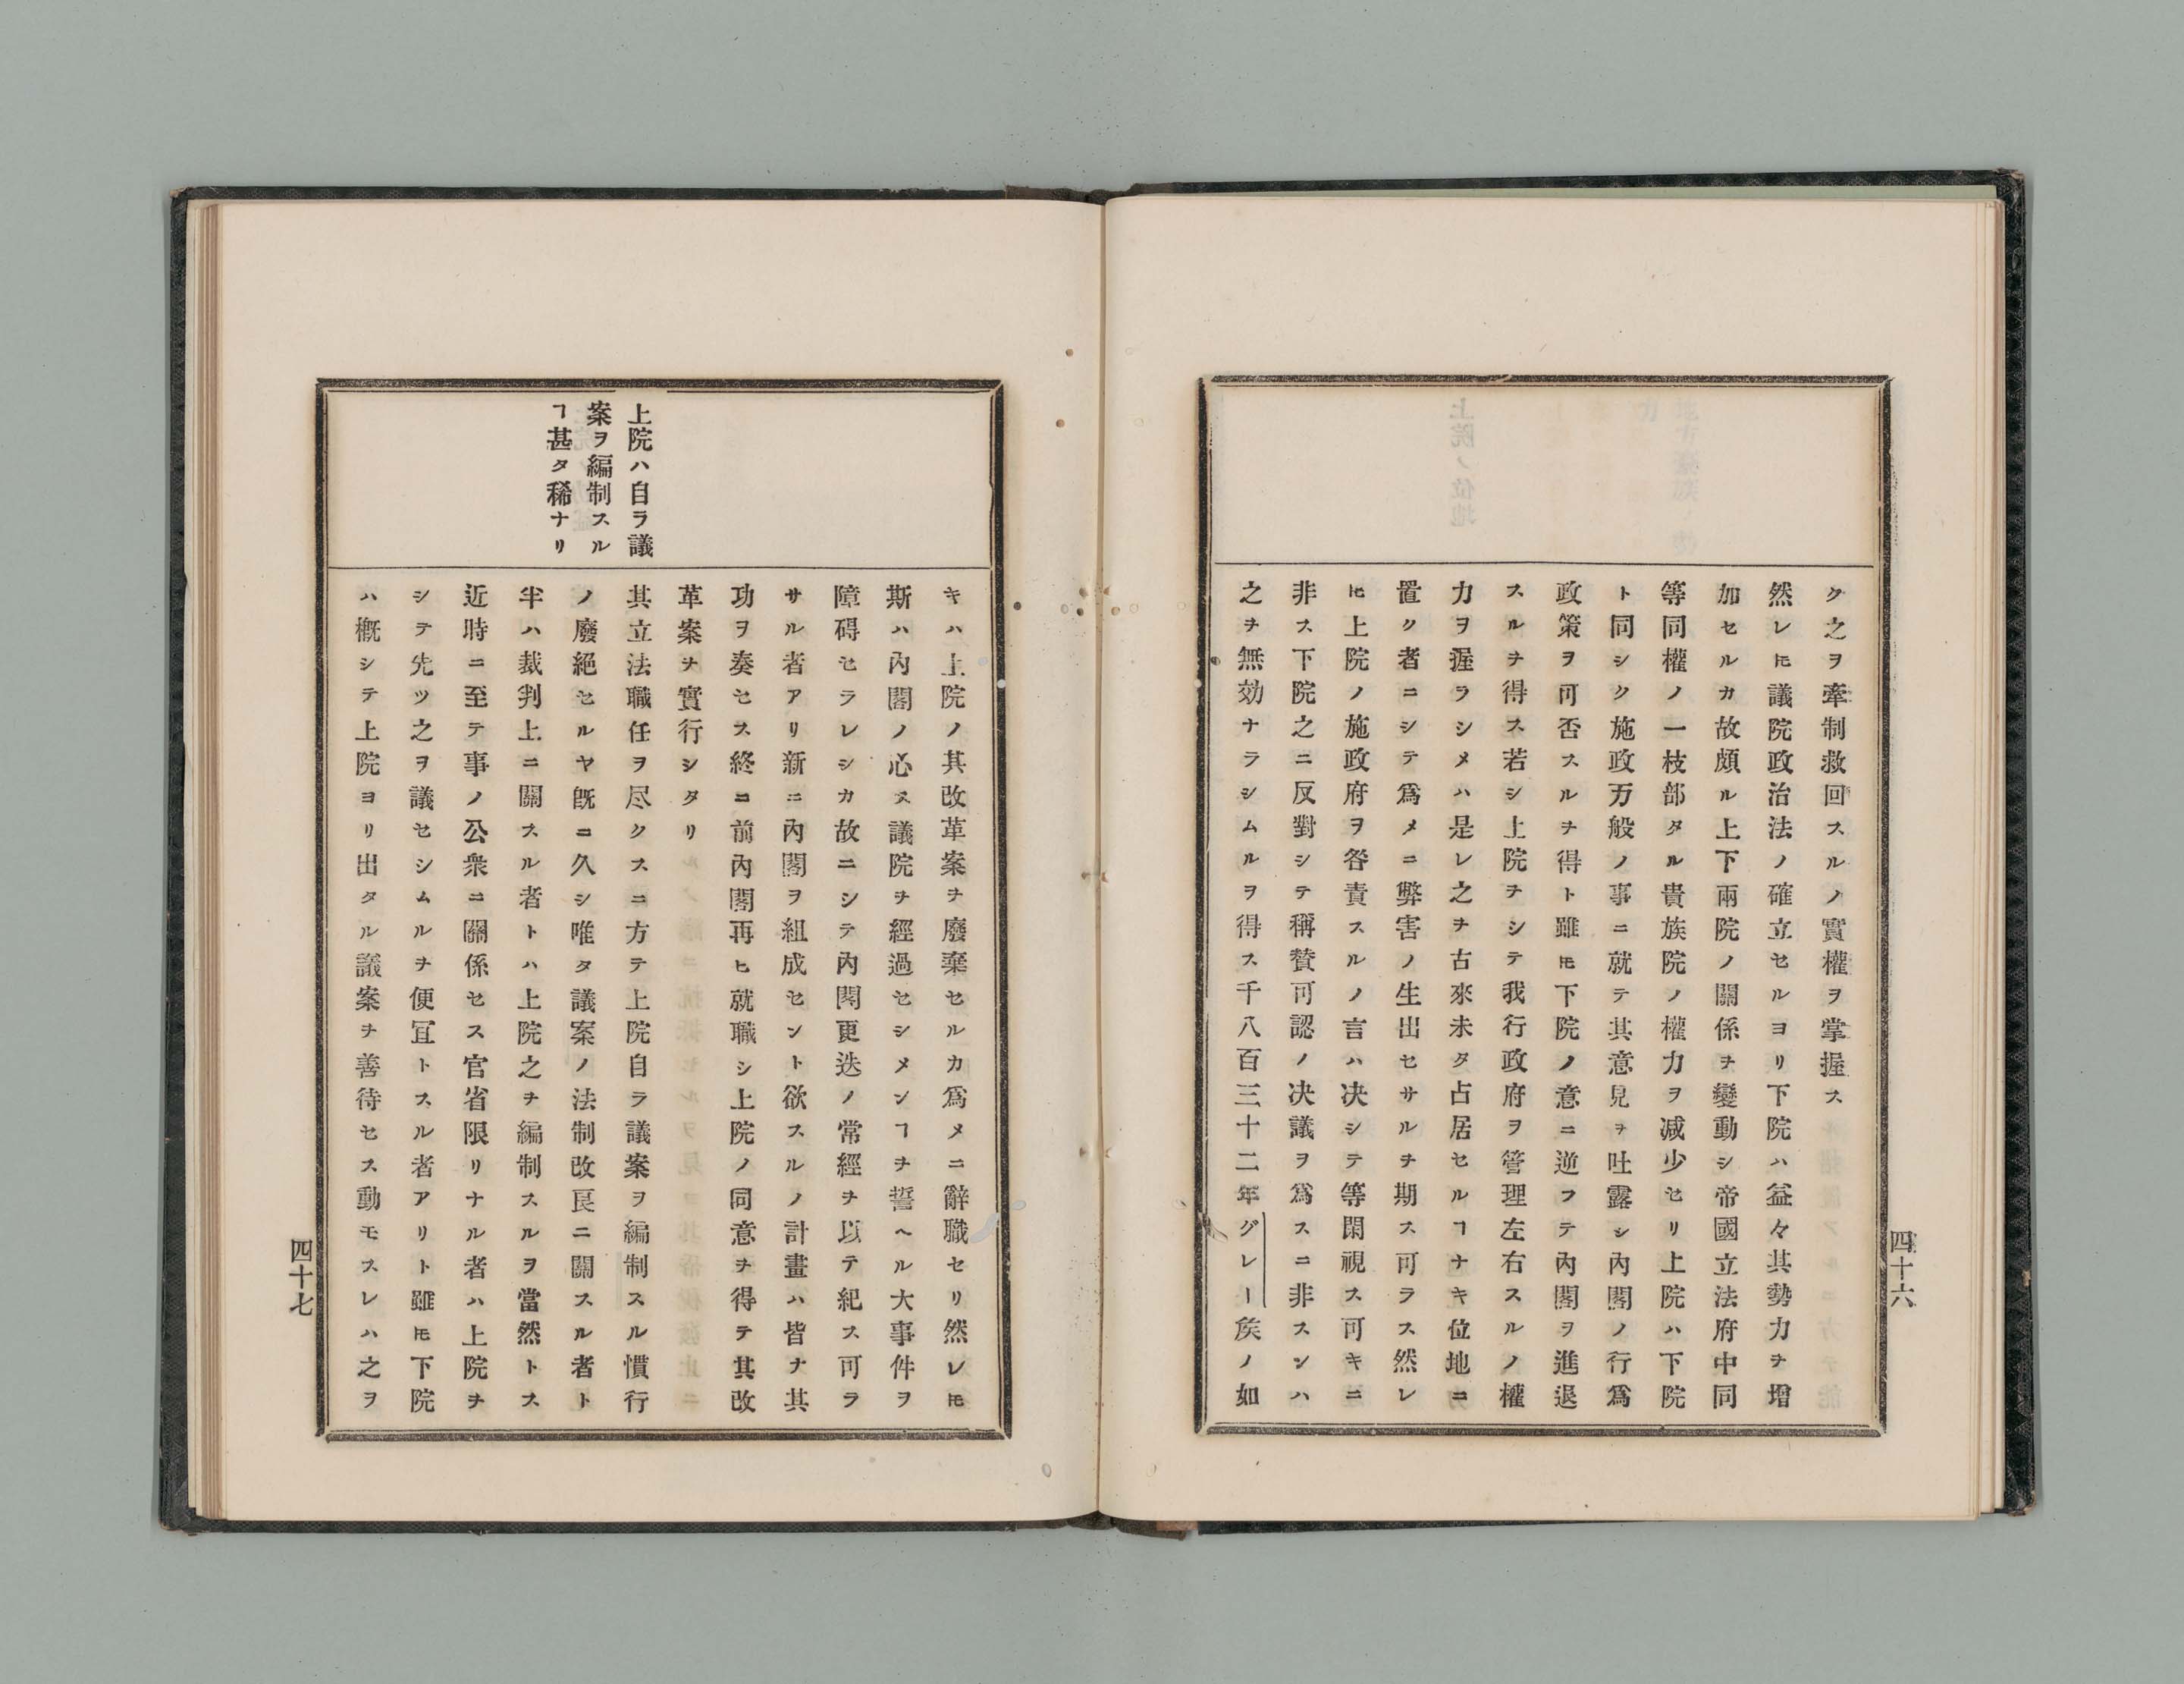 四十六
ク之ヲ牽制救回スルノ實權ヲ掌握ス
然レ𪜈議院政治法ノ確立セルヨリ下院ハ益々其勢力ヲ增
加セルカ故頗ル上下兩院ノ關係ヲ變動シ帝國立法府中同
等同權ノ一枝部タル貴族院ノ權力ヲ减少セリ上院ハ下院
ト同シク施政万般ノ事ニ就テ其意見ヲ吐露シ內閣ノ行爲
政策ヲ可否スルヲ得ト雖𪜈下院ノ意ニ逆フテ內閣ヲ進退
スルヲ得ス若シ上院ヲシテ我行政府ヲ管理左右スルノ權
力ヲ握ラシメハ是レ之ヲ古來未タ占居セルヿナキ位地ニ
置ク者ニシテ爲メニ弊害ノ生出セサルヲ期ス可ラス然レ
𪜈上院ノ施政府ヲ咎責スルノ言ハ决シテ等閑視ス可キニ
非ス下院之ニ反對シテ稱賛可認ノ决議ヲ爲スニ非スンハ
之ヲ無効ナラシムルヲ得ス千八百三十二年グレー矦ノ如
キハ上院ノ其改革案ヲ廢棄セルカ爲メニ辭職セリ然レ𪜈
斯ハ內閣ノ必ス議院ヲ經過セシメンヿヲ誓ヘル大事件ヲ
障碍セラレシカ故ニシテ內閣更迭ノ常經ヲ以テ紀ス可ラ
サル者アリ新ニ內閣ヲ組成セント欲スルノ計畫ハ皆ナ其
功ヲ奏セス終ニ前內閣再ヒ就職シ上院ノ同意ヲ得テ其改
革案ヲ實行シタリ
上院ハ自ラ議
案ヲ編制スル
ヿ甚タ稀ナリ
其立法職任ヲ尽クスニ方テ上院自ラ議案ヲ編制スル慣行
ノ廢絕セルヤ旣ニ久シ唯タ議案ノ法制改良ニ關スル者ト
半ハ裁判上ニ關スル者トハ上院之ヲ編制スルヲ當然トス
近時ニ至テ事ノ公衆ニ關係セス官省限リナル者ハ上院ヲ
シテ先ツ之ヲ議セシムルヲ便冝トスル者アリト雖𪜈下院
ハ槪シテ上院ヨリ出タル議案ヲ善待セス動モスレハ之ヲ
四十七